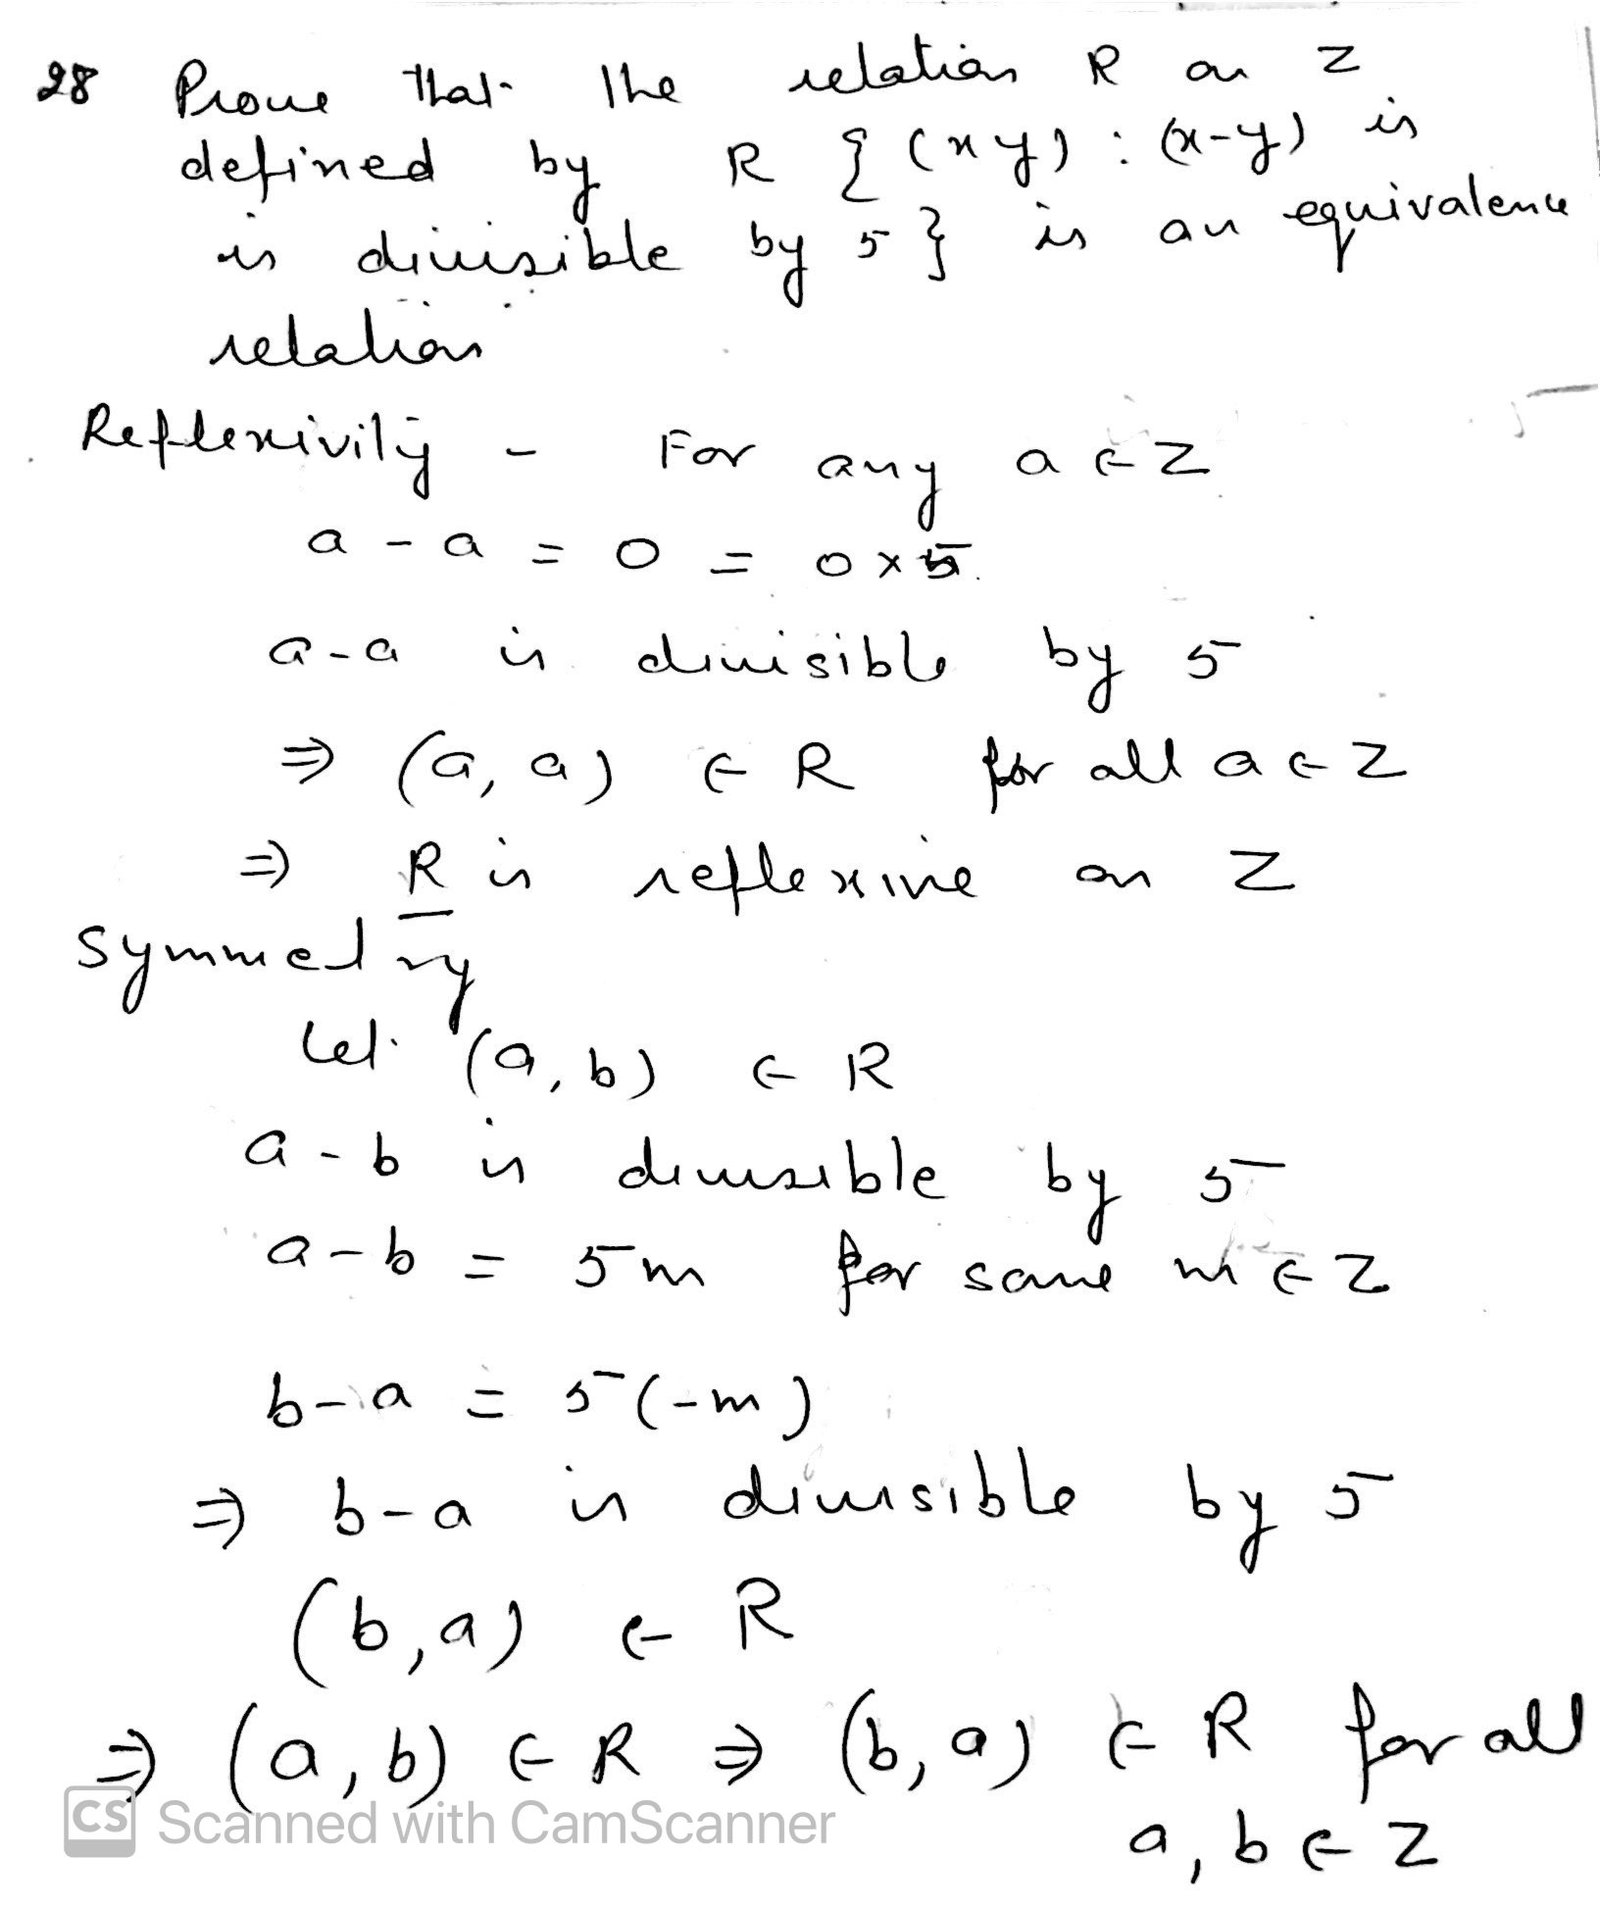 28 Prove that the relation R on Z
defined by R { (x y) : (x-y) is
is divisible by 5 } is an equivalence
relation
Reflexivity - For any a ∈ Z
a - a = 0 = 0 × 5.
a-a is divisible by 5
⇒ (a, a) ∈ R for all a ∈ Z
⇒ R is reflexive on Z
Symmetry
Let (a, b) ∈ R
a - b is divisible by 5
a - b = 5m for some m ∈ Z
b - a = 5(-m)
⇒ b-a is divisible by 5
(b,a) ∈ R
⇒ (a, b) ∈ R ⇒ (b, a) ∈ R for all
a, b ∈ Z
CS Scanned with CamScanner